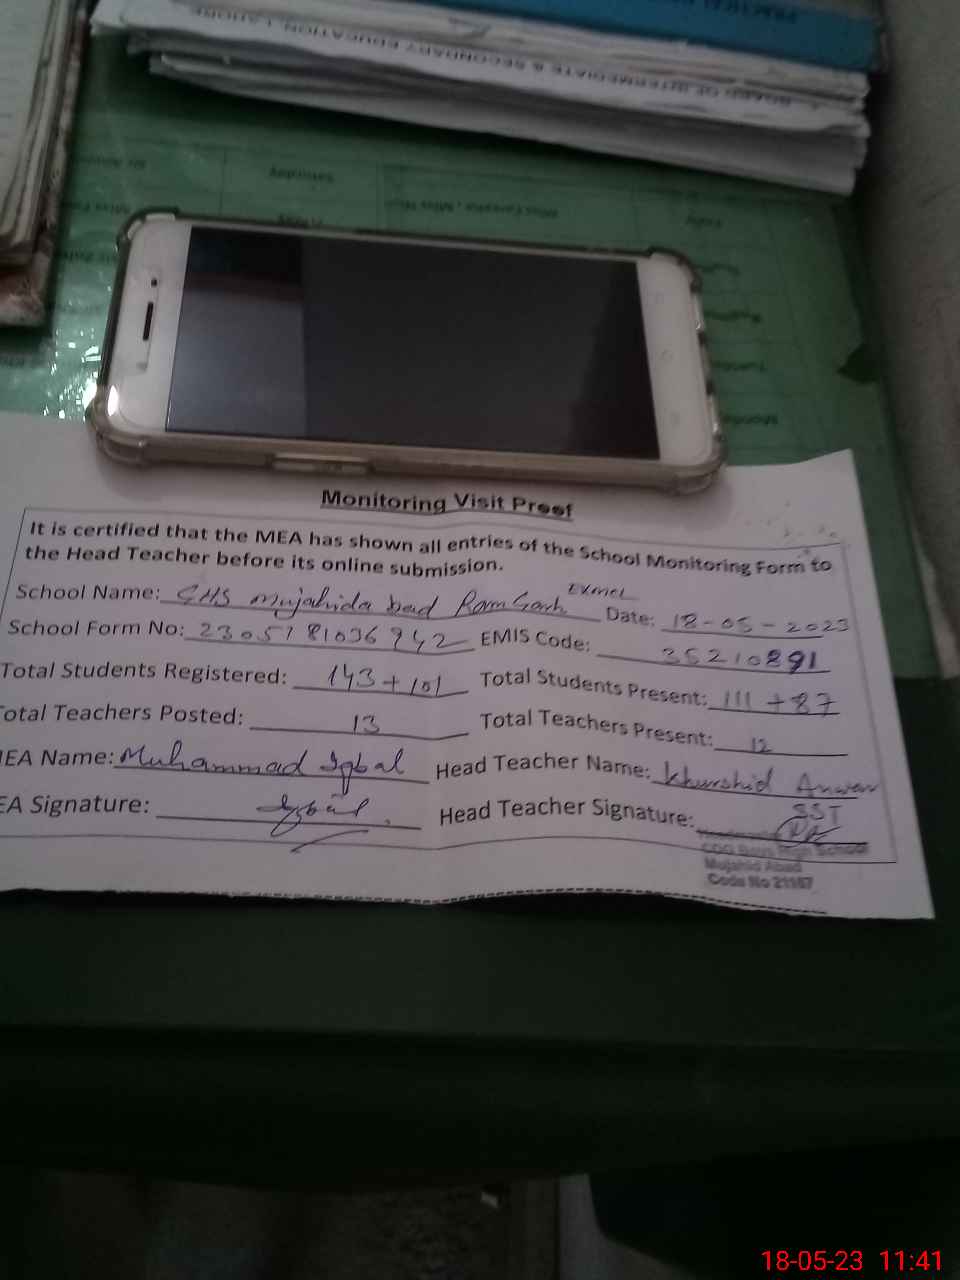 BOARD OF INTERMEDIATE & SECONDARY EDUCATION, LAHORE
Monitoring Visit Proof
It is certified that the MEA has shown all entries of the School Monitoring Form to
the Head Teacher before its online submission.
School Name: GHS Mujahida bad Ram Garh Date: 18-05-2023
School Form No: 2305181036942 EMIS Code: 35210891
Total Students Registered: 143+101 Total Students Present: 111+87
Total Teachers Posted: 13 Total Teachers Present: 12
MEA Name: Muhammad Iqbal Head Teacher Name: Khurshid Anwar
SST
EA Signature: Iqbal Head Teacher Signature:
CDG Boys High School
Mujahid Abad
Code No 21187
18-05-23 11:41